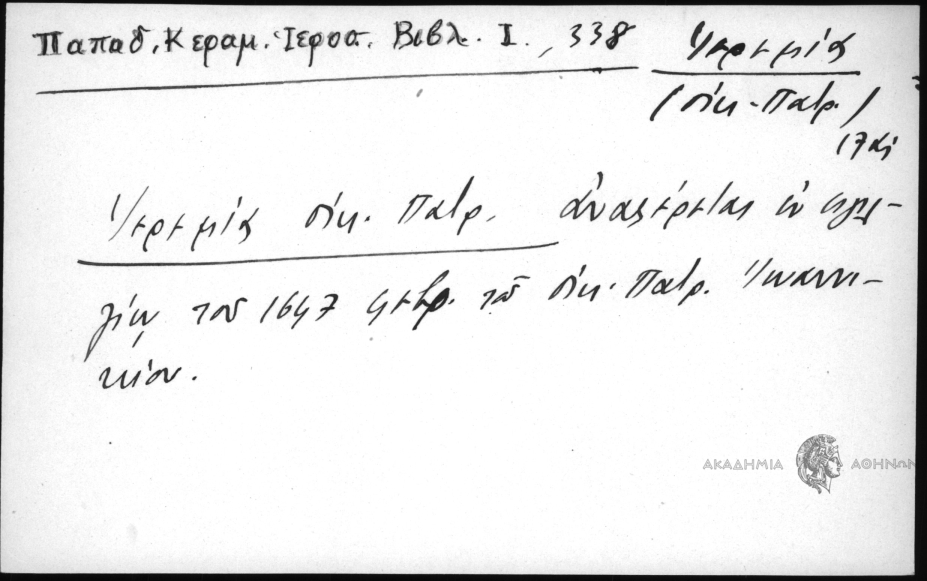 Παπαδ. Κεραμ. Ἱεροσ. Βιβλ. I., 338
Ἱερεμίας
(οἰκ. Πατρ.)
17 αἰ
Ἱερεμίας οἰκ. Πατρ. ἀναφέρεται ἐν
τοῦ 1647 Φεβρ. τοῦ οἰκ. Πατρ. Ἰωαννι-
κίου.
ΑΚΑΔΗΜΙΑ ΑΘΗΝΩΝ